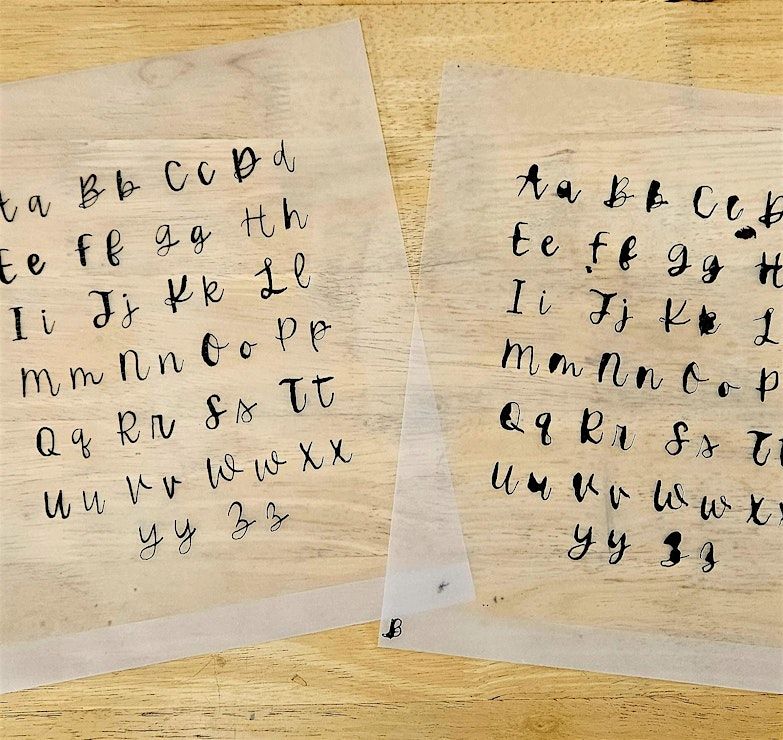 a Bb Cc Dd
Ee ff gg Hh
Ii Jj Kk Ll
Mm Nn Oo Pp
Qq Rr Ss Tt
Uu Vv Ww Xx
yy Zz
Aa Bb Cc D
Ee ff gg H
Ii Jj Kk L
Mm Nn Oo P
Qq Rr Ss Tt
Uu Vv Ww Xx
yy Zz
B